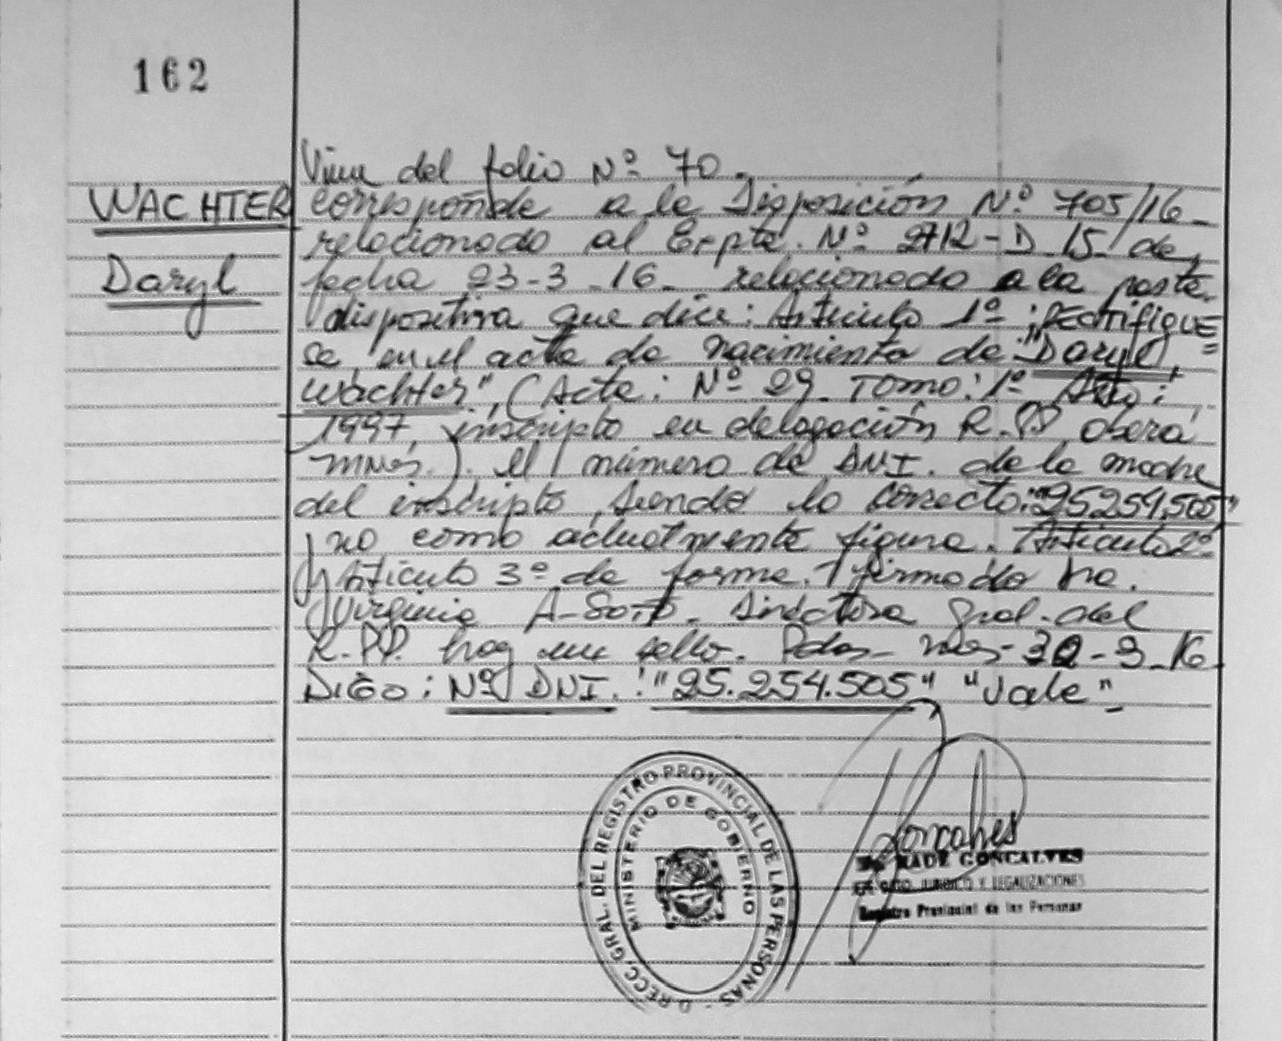 162
WACHTER
Daryl
Viene del folio Nº 70.
corresponde a la Disposición Nº 705/16-
relacionado al Expte. Nº 2712-D 15- de
fecha 23-3-16- relacionado a la parte
dispositiva que dice: Articulo 1º: RECTIFIQUE=
se, en el acta de nacimiento de "Daryl,
Wachter", (Acta: Nº 29. Tomo: 1º Año:
1997, inscripto en delegación R.PP. oberá
mnes.). el número de DNI. de la madre
del inscripto, siendo lo correcto: "25.254.505"
y no como actualmente figura. Articulo 2º
y Articulo 3º de forma. firmado
Virginia A. Soto. Directora Gral. del
R.PP. hay un sello. Pdas- mes- 30-3-16
DIGO: Nº DNI.: "25.254.505" "Vale"-
DIRECC. GRAL. DEL REGISTRO PROVINCIAL DE LAS PERSONAS
MINISTERIO DE GOBIERNO
Goncalves
GONCALVES
JURIDICO Y LEGALIZACIONES
Registro Provincial de las Personas